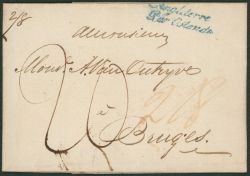 2/8
Angleterre
Par Ostende
a Monsieur
Monsr. A. Van Outryve
à
Bruges.